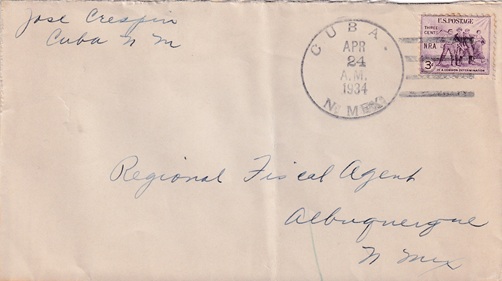 Jose Crespin
Cuba N M
CUBA.
APR
24
A.M.
1934
N. MEX.
U.S. POSTAGE
THREE CENTS
NRA
3¢
IN A COMMON DETERMINATION
Regional Fiscal Agent
Albuquerque
N Mex